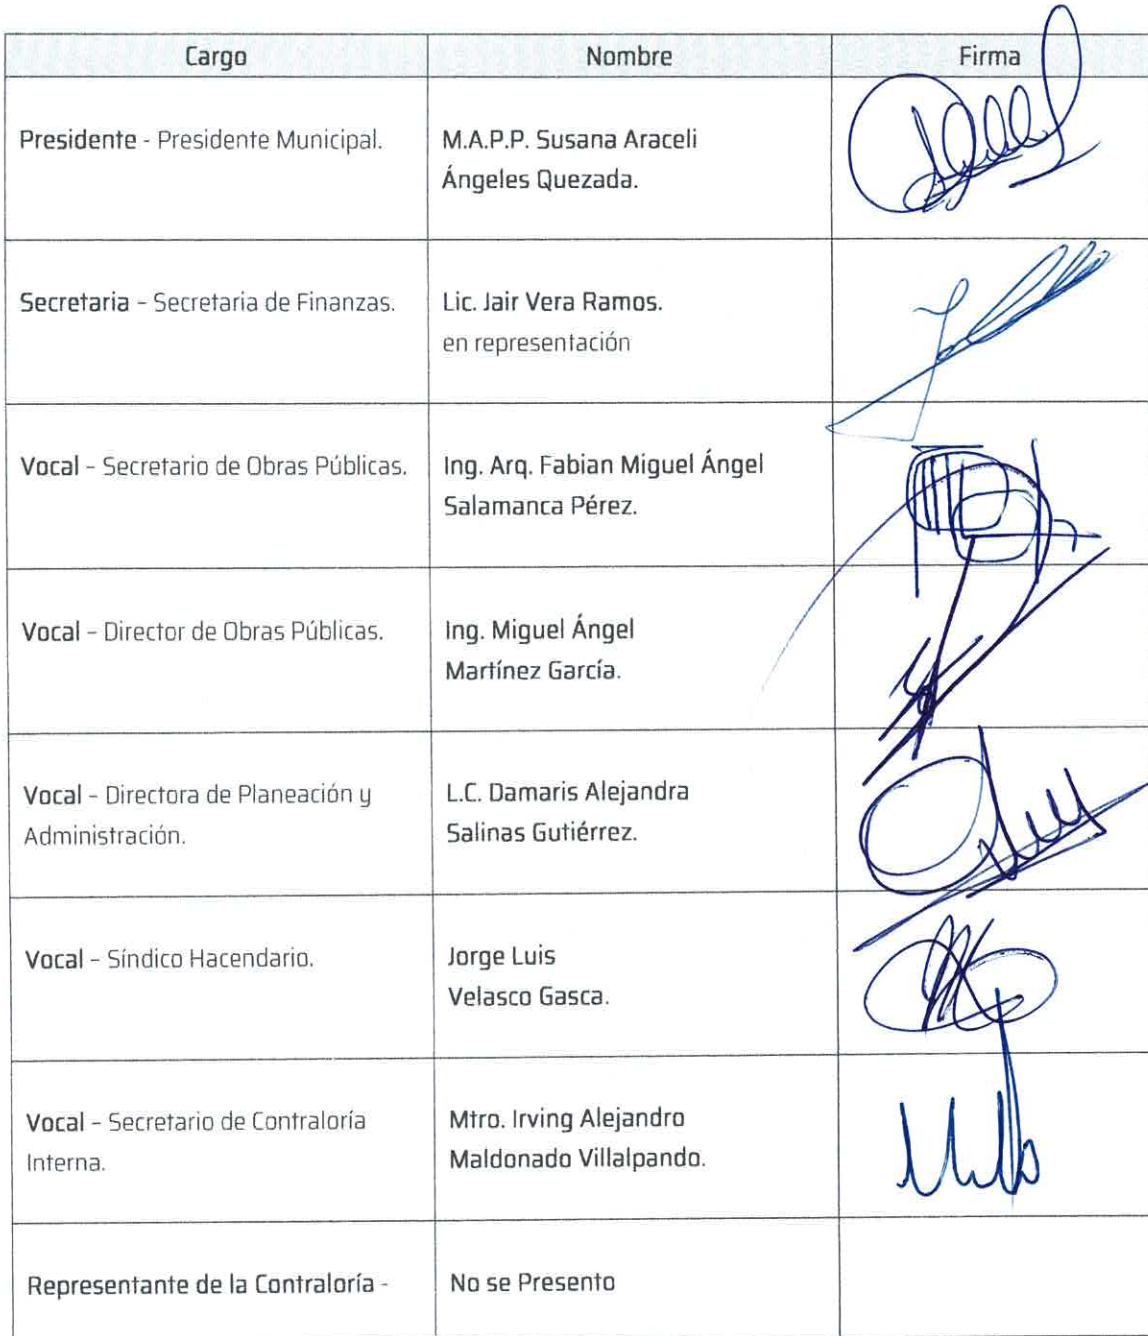 Cargo Nombre Firma
Presidente - Presidente Municipal. M.A.P.P. Susana Araceli
Ángeles Quezada.
Secretaria – Secretaria de Finanzas. Lic. Jair Vera Ramos.
en representación
Vocal – Secretario de Obras Públicas. Ing. Arq. Fabian Miguel Ángel
Salamanca Pérez.
Vocal – Director de Obras Públicas. Ing. Miguel Ángel
Martínez García.
Vocal – Directora de Planeación y L.C. Damaris Alejandra
Administración. Salinas Gutiérrez.
Vocal – Síndico Hacendario. Jorge Luis
Velasco Gasca.
Vocal – Secretario de Contraloría Mtro. Irving Alejandro
Interna. Maldonado Villalpando.
Representante de la Contraloría - No se Presento